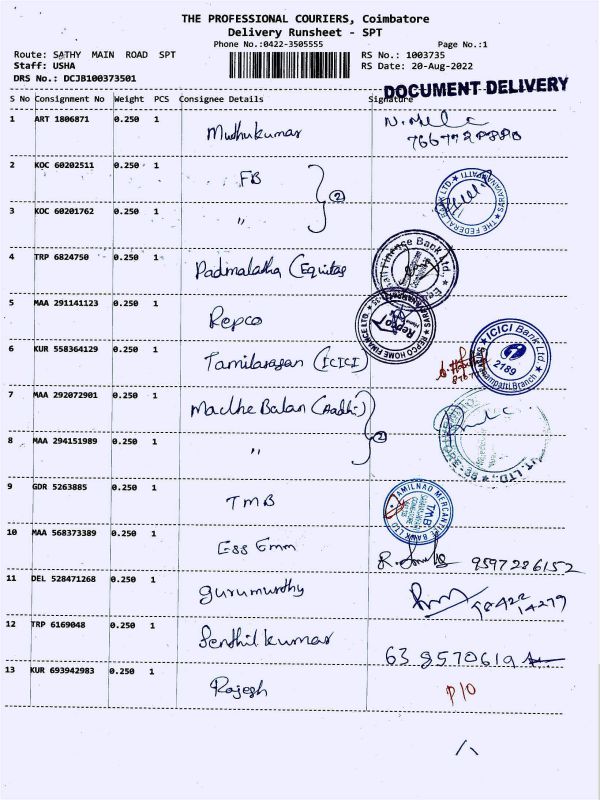 THE PROFESSIONAL COURIERS, Coimbatore
Delivery Runsheet - SPT
Phone No.:0422-3505555 Page No.:1
Route: SATHY MAIN ROAD SPT RS No.: 1003735
Staff: USHA RS Date: 20-Aug-2022
DRS No.: DCJB100373501
DOCUMENT DELIVERY
S No Consignment No Weight PCS Consignee Details Signature
1 ART 1806871 0.250 1 Muthukumar
2 KOC 60202511 0.250 1 FB
THE FEDERAL BANK LTD.
②
3 KOC 60201762 0.250 1 "
4 TRP 6824750 0.250 1 Padmalatha (Equitas
Finance Bank Ltd.
5 MAA 291141123 0.250 1 Repco
REPCO HOME FINANCE LTD.
Repco
6 KUR 558364129 0.250 1 Tamilarasan (ICICI)
ICICI Bank Ltd
2189
Branch
7 MAA 292072901 0.250 1 Madhe Balan (Aadhi)
②
8 MAA 294151989 0.250 1 "
9 GDR 5263885 0.250 1 TMB
TAMILNAD MERCANTILE BANK LTD
TMB
10 MAA 568373389 0.250 1 Ess Emm
9597226152
11 DEL 528471268 0.250 1 gurumurthy
12 TRP 6169048 0.250 1 Senthil kumar
13 KUR 693942983 0.250 1 Rajesh P/O